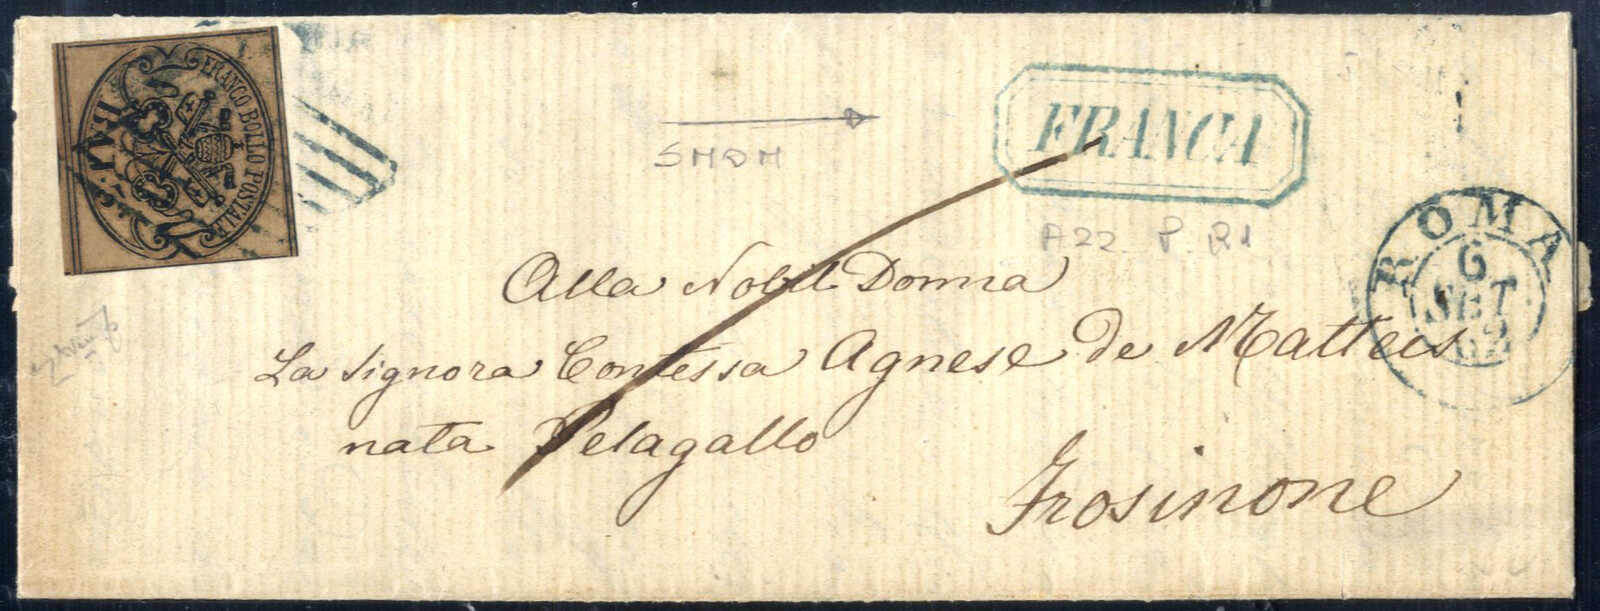 FRANCO BOLLO POSTALE
BAJ
FRANCA
SMOM
A22 P. R1
ROMA
6
SET
62
Alla Nobil Donna
La Signora Contessa Agnese de Matteis
nata Pelagallo
Frosinone